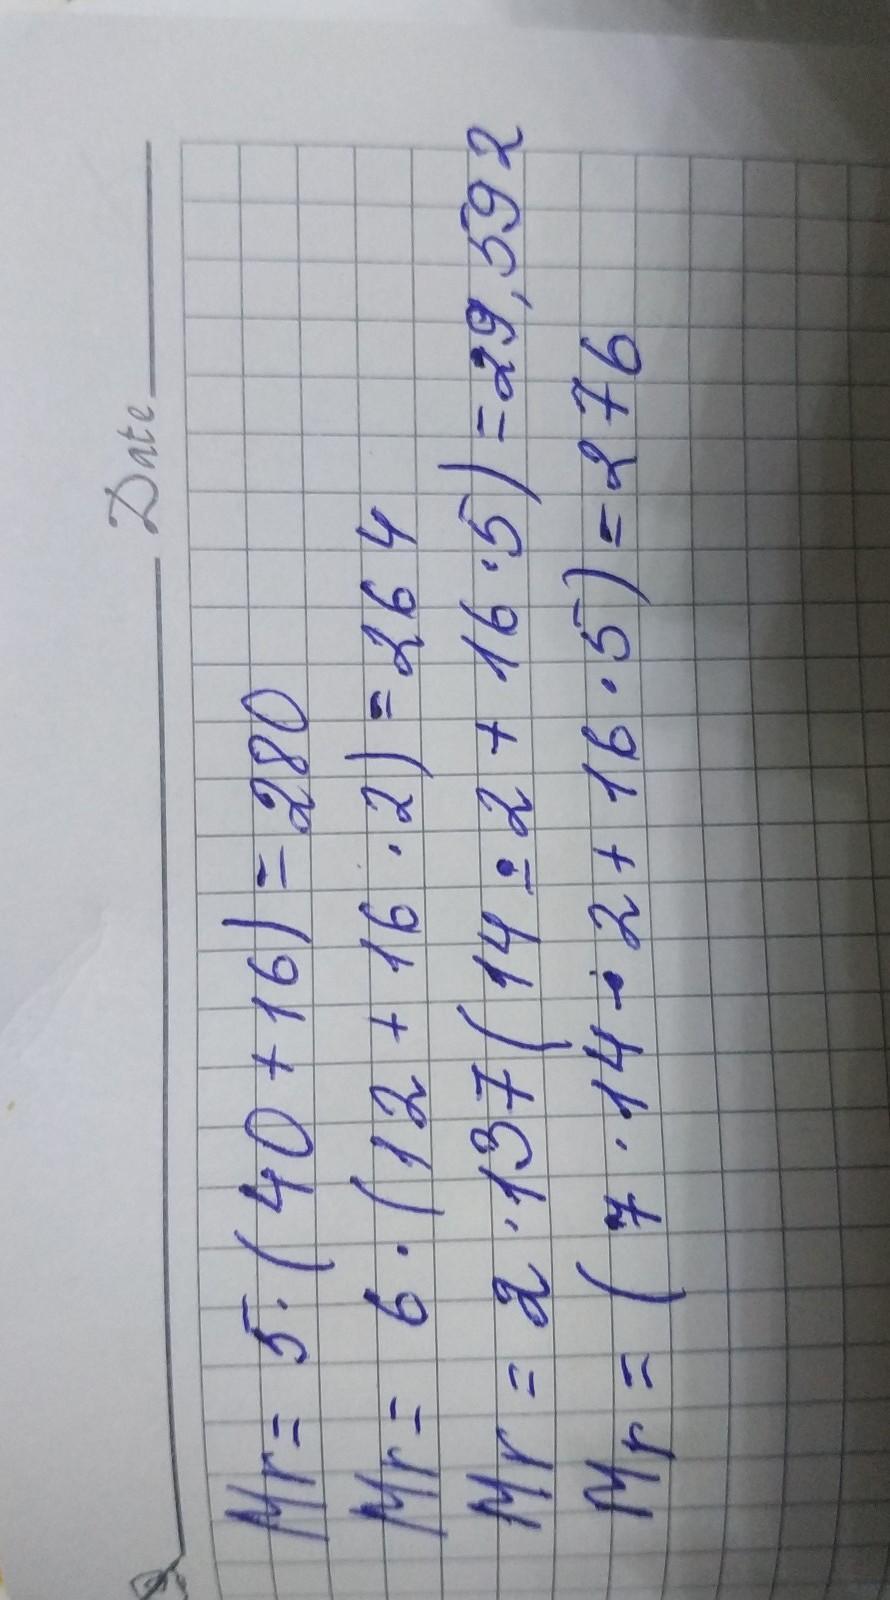 Date
Mr = 5·(40+16) = 280
Mr = 6·(12+16·2) = 264
Mr = 2·137(14·2+16·5) = 29,592
Mr = (7·14·2+16·5) = 276